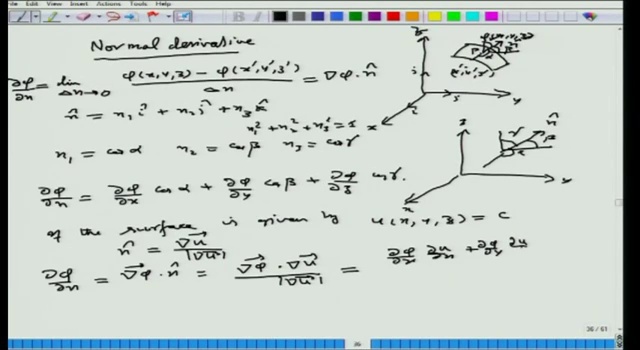 Edit View Insert Actions Tools Help
Normal derivative
∂φ/∂n = lim Δn→0 (φ(x,y,z) − φ(x',y',z'))/Δn = ∇φ·n̂
n̂ = n₁î + n₂ĵ + n₃k̂
n₁² + n₂² + n₃² = 1
n₁ = cosα n₂ = cosβ n₃ = cosγ
∂φ/∂n = ∂φ/∂x cosα + ∂φ/∂y cosβ + ∂φ/∂z cosγ.
of the surface is given by u(x,y,z) = c
n̂ = ∇u/|∇u|
∂φ/∂n = ∇φ·n̂ = ∇φ·∇u/|∇u| = ∂φ/∂x ∂u/∂x + ∂φ/∂y ∂u
z
y
x
z
n̂
γ
β
α
y
x
36 / 61
36